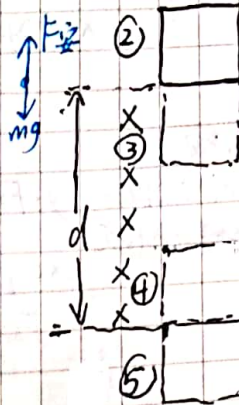 F安
②
mg
③
d
④
⑤